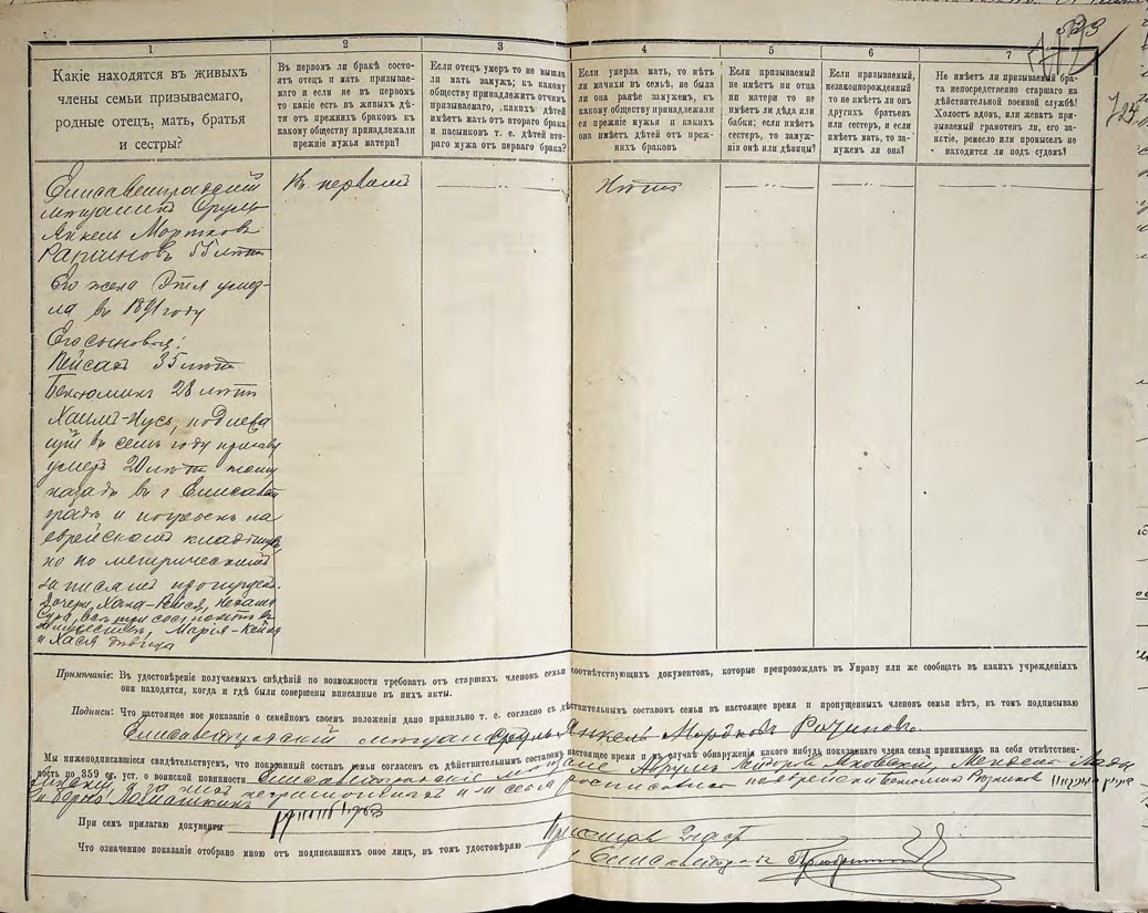 533
1
2
3
4
5
6
7
Какіе находятся въ живыхъ
члены семьи призываемаго,
родные отецъ, мать, братья
и сестры?
Въ первомъ ли бракѣ состо-
ятъ отецъ и мать призывае-
маго и если не въ первомъ
то какіе есть въ живыхъ дѣ-
ти отъ прежнихъ браковъ къ
какому обществу принадлежали
прежніе мужья матери?
Если отецъ умеръ то не вышла
ли мать замужъ; къ какому
обществу принадлежитъ отчимъ
призываемаго, какихъ дѣтей
имѣетъ мать отъ втораго брака
и пасынковъ т. е. дѣтей вто-
раго мужа отъ перваго брака?
Если умерла мать, то нѣтъ
ли мачихи въ семьѣ, не была
ли она ранѣе замужемъ, къ
какому обществу принадлежали
ея прежніе мужья и какихъ
она имѣетъ дѣтей отъ преж-
нихъ браковъ
Если призываемый
не имѣетъ ни отца
ни матери то не
имѣетъ ли дѣда или
бабки; если имѣетъ
сестеръ, то замуж-
нія онѣ или дѣвицы?
Если призываемый,
незаконорожденный
то не имѣетъ ли онъ
другихъ братьевъ
или сестеръ, и если
имѣетъ мать, то за-
мужемъ ли она?
Не имѣетъ ли призываемый бра-
та непосредственно старшаго на
дѣйствительной военной службѣ!
Холостъ вдовъ, или женатъ при-
зываемый грамотенъ ли, его за-
нятіе, ремесло или промыселъ не
находится ли подъ судомъ?
Елисаветградскій
мѣщанинъ Сруль
Янкель Мортковъ
Рапиновъ 55 лѣтъ
Въ первомъ
Нѣтъ
Его жена Этля умер-
ла въ 1891 году
Его сыновья:
Пейсахъ 35 лѣтъ
Беньюминъ 28 лѣтъ
Хаимъ-Нусъ, подлежа
щій въ семъ году призыву
умеръ 20 лѣтъ тому
назадъ въ г Елисавет
градѣ и погребенъ на
еврейскомъ кладбищѣ,
но по метрическимъ
записямъ пропущенъ.
Дочери, Хана-Рейся, Нехама
Сура, всѣ три состоятъ въ
замужествѣ, Марія-Кейла
и Хася дѣвицы
Примѣчаніе: Въ удостовѣреніе получаемыхъ свѣдѣній по возможности требовать отъ старшихъ членовъ семьи соотвѣтствующихъ документовъ, которые препровождать въ Управу или же сообщать въ какихъ учрежденіяхъ
они находятся, когда и гдѣ были совершены вписанные въ нихъ акты.
Подписи: Что настоящее мое показаніе о семейномъ своемъ положеніи дано правильно т. е. согласно съ дѣйствительнымъ составомъ семьи въ настоящее время и пропущенныхъ членовъ семьи нѣтъ, въ томъ подписываю
Елисаветградскій мѣщанинъ Сруль Янкель Мордковъ
Мы нижеподписавшіеся свидѣтельствуемъ, что показанный составъ семьи согласенъ съ дѣйствительнымъ составомъ настоящее время и въ случаѣ обнаруженія какого нибудь показаннаго члена семьи принимаемъ на себя отвѣтствен-
ность по 359 ст. уст. о воинской повинности Елисаветградскіе мѣщане Аврумъ
росписался по еврейски Беньюминъ
При семъ прилагаю документы
Что означенное показаніе отобрано мною отъ подписавшихъ оное лицъ, въ томъ удостовѣряю Приставъ 2 части